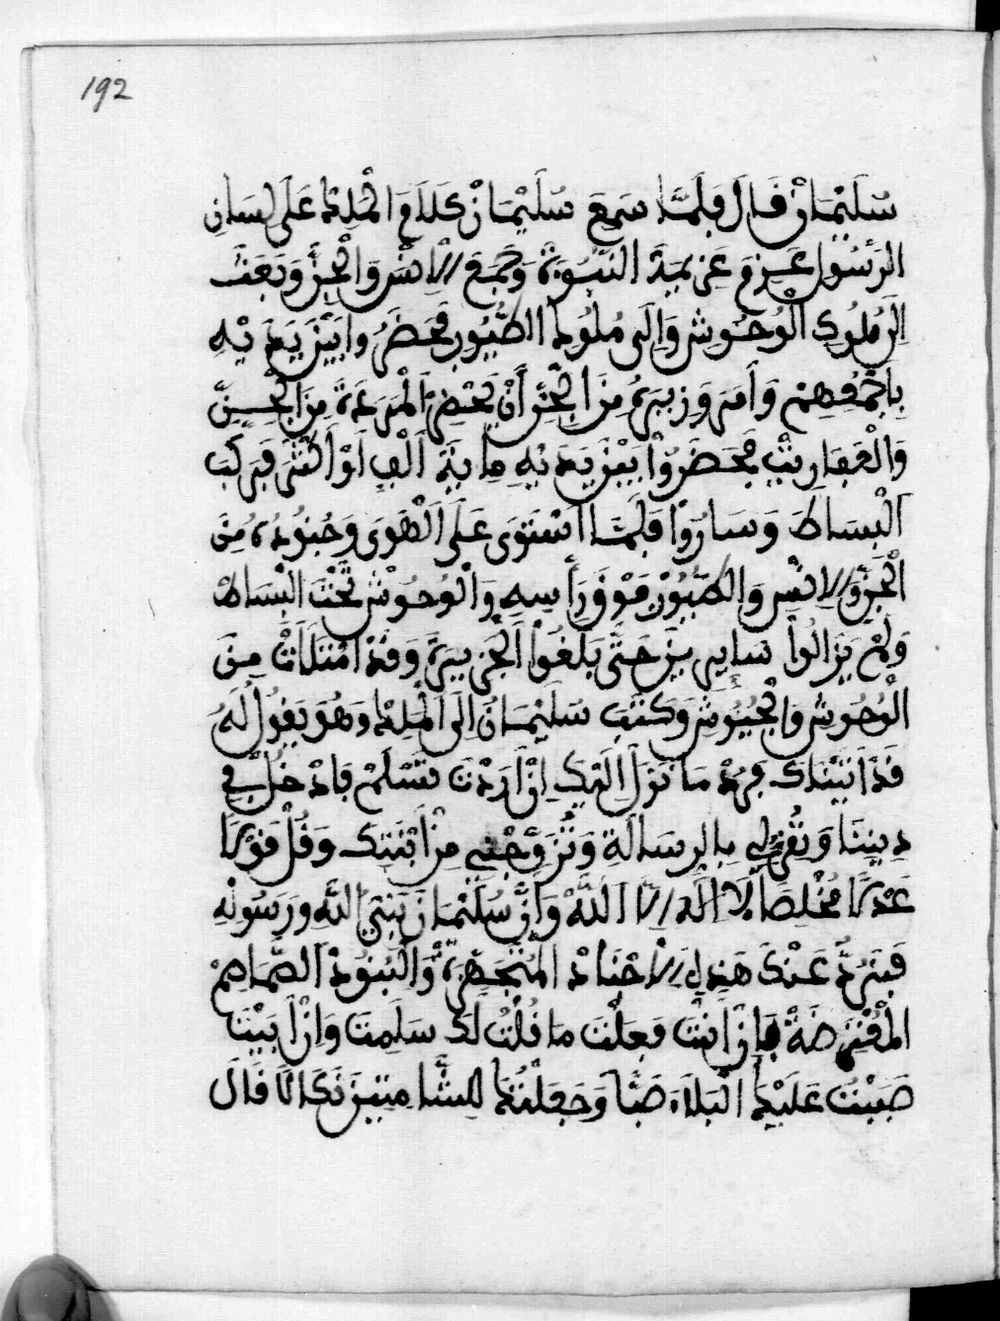 192
سُلَيْمَانْ قَالَ فَلَمَّا سَمِعَ سُلَيْمَانْ كَلَامَ الْمَلِكِ عَلَى لِسَانِ
الرَّسُولِ عَزِمَ عَزِيمَةَ النُّبُوَّةِ وَجَمَعَ الْاِنْسَ وَالْجِنَّ وَبَعَثَ
اِلَى مُلُوكِ الْوُحُوشِ وَإِلَى مُلُوكِ الطُّيُورِ فَحَضَرُوا بَيْنَ يَدَيْهِ
بِأَجْمَعِهِمْ وَأَمَرَ وَزِيرَهُ مِنَ الْجِنِّ أَنْ يَحْضِرَ الْمَرَدَةَ مِنَ الْجِنِّ
وَالْعَفَارِيتْ فَحَضَرُوْا بَيْنَ يَدَيْهِ مِايَةَ اَلْفِ اَوْ اَكْثَرَ فَرَكَبَ
اَلْبِسَاطَ وَسَارُوا فَلَمَّا اسْتَوَى عَلَى اَلْهَوَى وَجُنُودُهُ مِنَ
الْجِنِّ وَالْاِنْسِ وَالطُّيُورْ فَوْقَ رَأْسِهِ وَالْوُحُوشْ تَحْتَ الْبِسَاطْ
وَلَمْ يَزَالُوا سَايِرِينَ حَتَّى بَلَغُوا الْجَزِيرَةَ وَقَدْ امْتَلَاَتْ مِنَ
الْوُحُوشِ وَالْجُيُوشِ وَكَتَبَ سُلَيْمَانُ اِلَى الْمَلِكِ وَهُوَ يَقُولُ لَهُ
قَدْ اَتَيْنَاكَ فَرُدْ مَا نَزَلَ اِلَيْكَ اِنْ اَرَدْتَ تَسْلَمْ فَادْخُلْ فِي
دِينِنَا وَتُقِرْ لِي بِالرِسَالَةِ وَتُزَوِّجْنِي مِنْ اَبْنَتِكَ وَقُلْ قَوْلًا
عَدْلًا مُخْلِصًا لَا اِلَهَ اِلَّا اللَّهْ وَاَنَّ سُلَيْمَانَ نَبِيُّ اللَّهِ وَرَسُولُهْ
فَنَرُدَّ عَنْكَ هَذِهِ الْاَجْنَادْ الْمُتَجَهِّزَةْ وَالْبُنُودْ
فَاِنْ اَنْتَ فَعَلْتَ مَا قُلْتُ لَكَ سَلِمْتَ وَاِنْ اَبَيْتَ
صَبَبْتُ عَلَيْكَ الْبَلَاءَ صَبًّا وَجَعَلْتُكَ نَكَالًا قَالَ